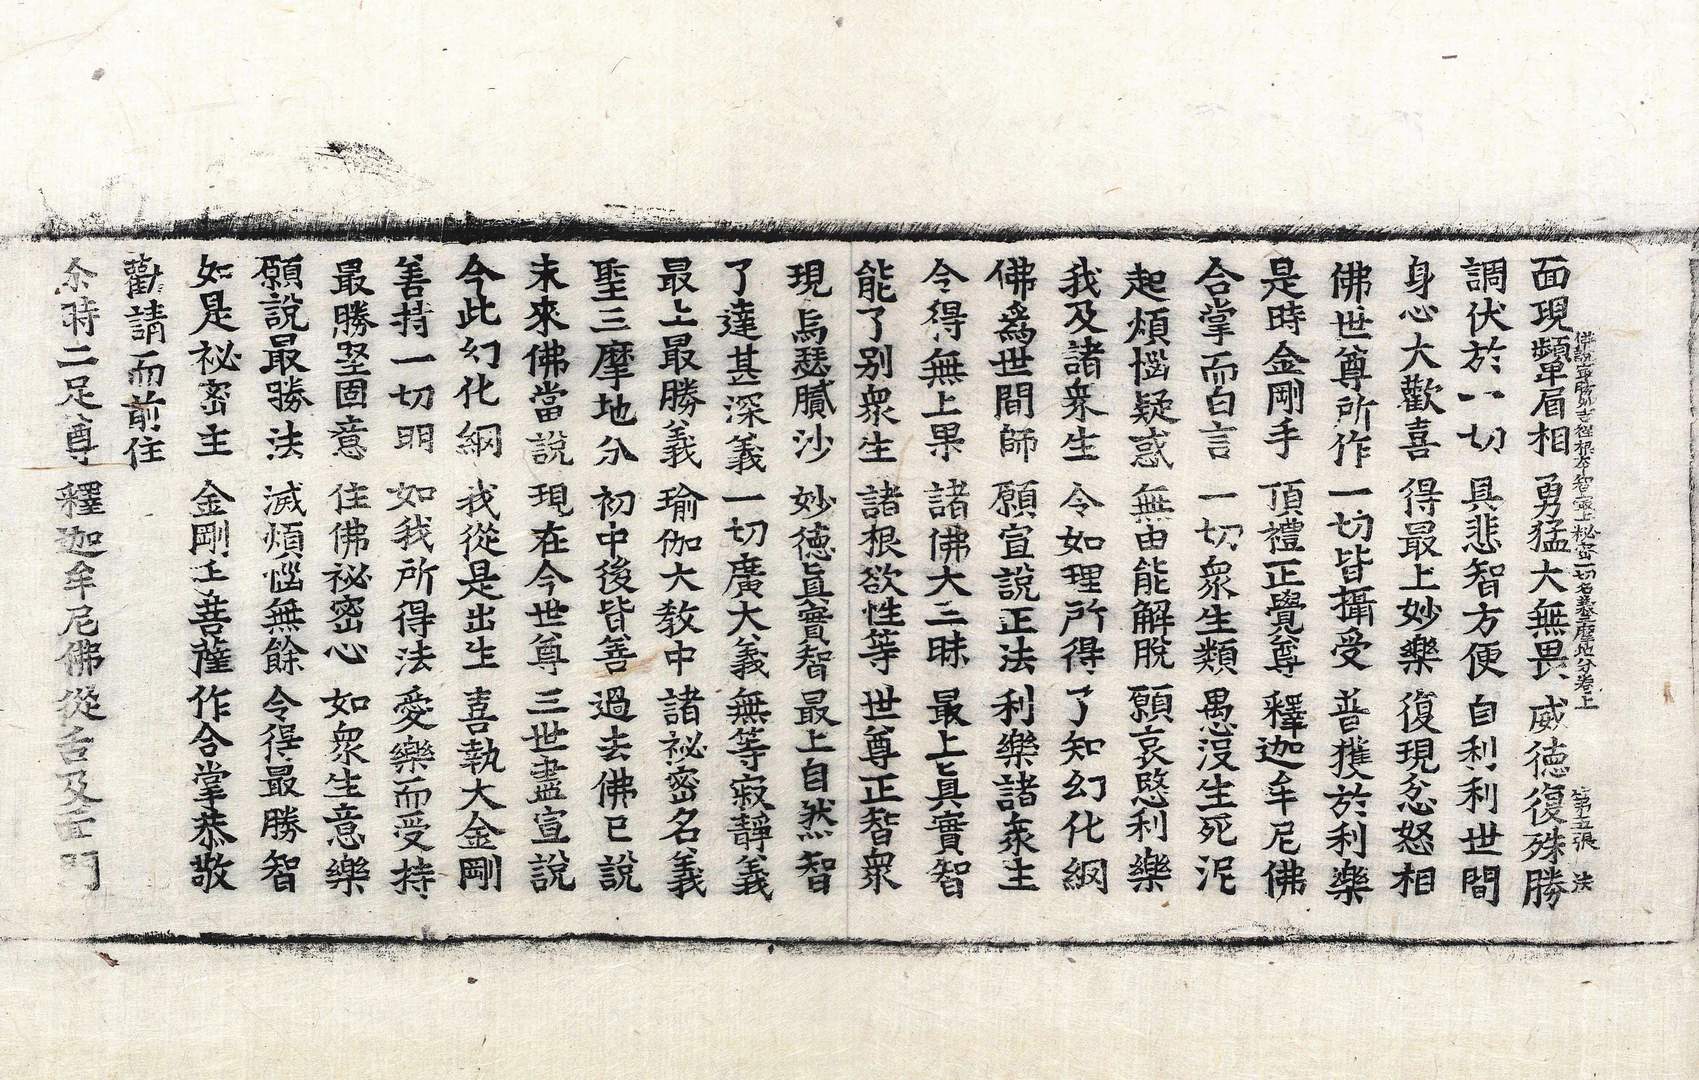 佛說最勝妙吉祥根本智最上秘密一切名義三摩地分卷上 第五張 法
面現顰眉相 勇猛大無畏 威德復殊勝
調伏於一切 具悲智方便 自利利世間
身心大歡喜 得最上妙樂 復現忿怒相
佛世尊所作 一切皆攝受 普獲於利樂
是時金剛手 頂禮正覺尊 釋迦牟尼佛
合掌而白言 一切眾生類 愚惑沒生死泥
起煩惱疑惑 無由能解脫 願哀愍利樂
我及諸眾生 令如理所得 了知幻化網
佛為世間師 願宣說正法 利樂諸眾生
令得無上果 諸佛大三昧 最上真實智
能了別眾生 諸根欲性等 世尊正智眾
現烏瑟膩沙 妙德真實智 最上自然智
了達甚深義 一切廣大義 無等寂靜義
最上最勝義 瑜伽大教中 諸祕密名義
聖三摩地分 初中後皆善 過去佛已說
未來佛當說 現在今世尊 三世盡宣說
今此幻化網 我從是出生 喜執大金剛
善持一切明 如我所得法 愛樂而受持
最勝堅固意 住佛祕密心 如眾生意樂
願說最勝法 滅煩惱無餘 令得最勝智
如是祕密主 金剛手菩薩 作合掌恭敬
勸請而前住
尒時二足尊 釋迦牟尼佛 從舌及面門